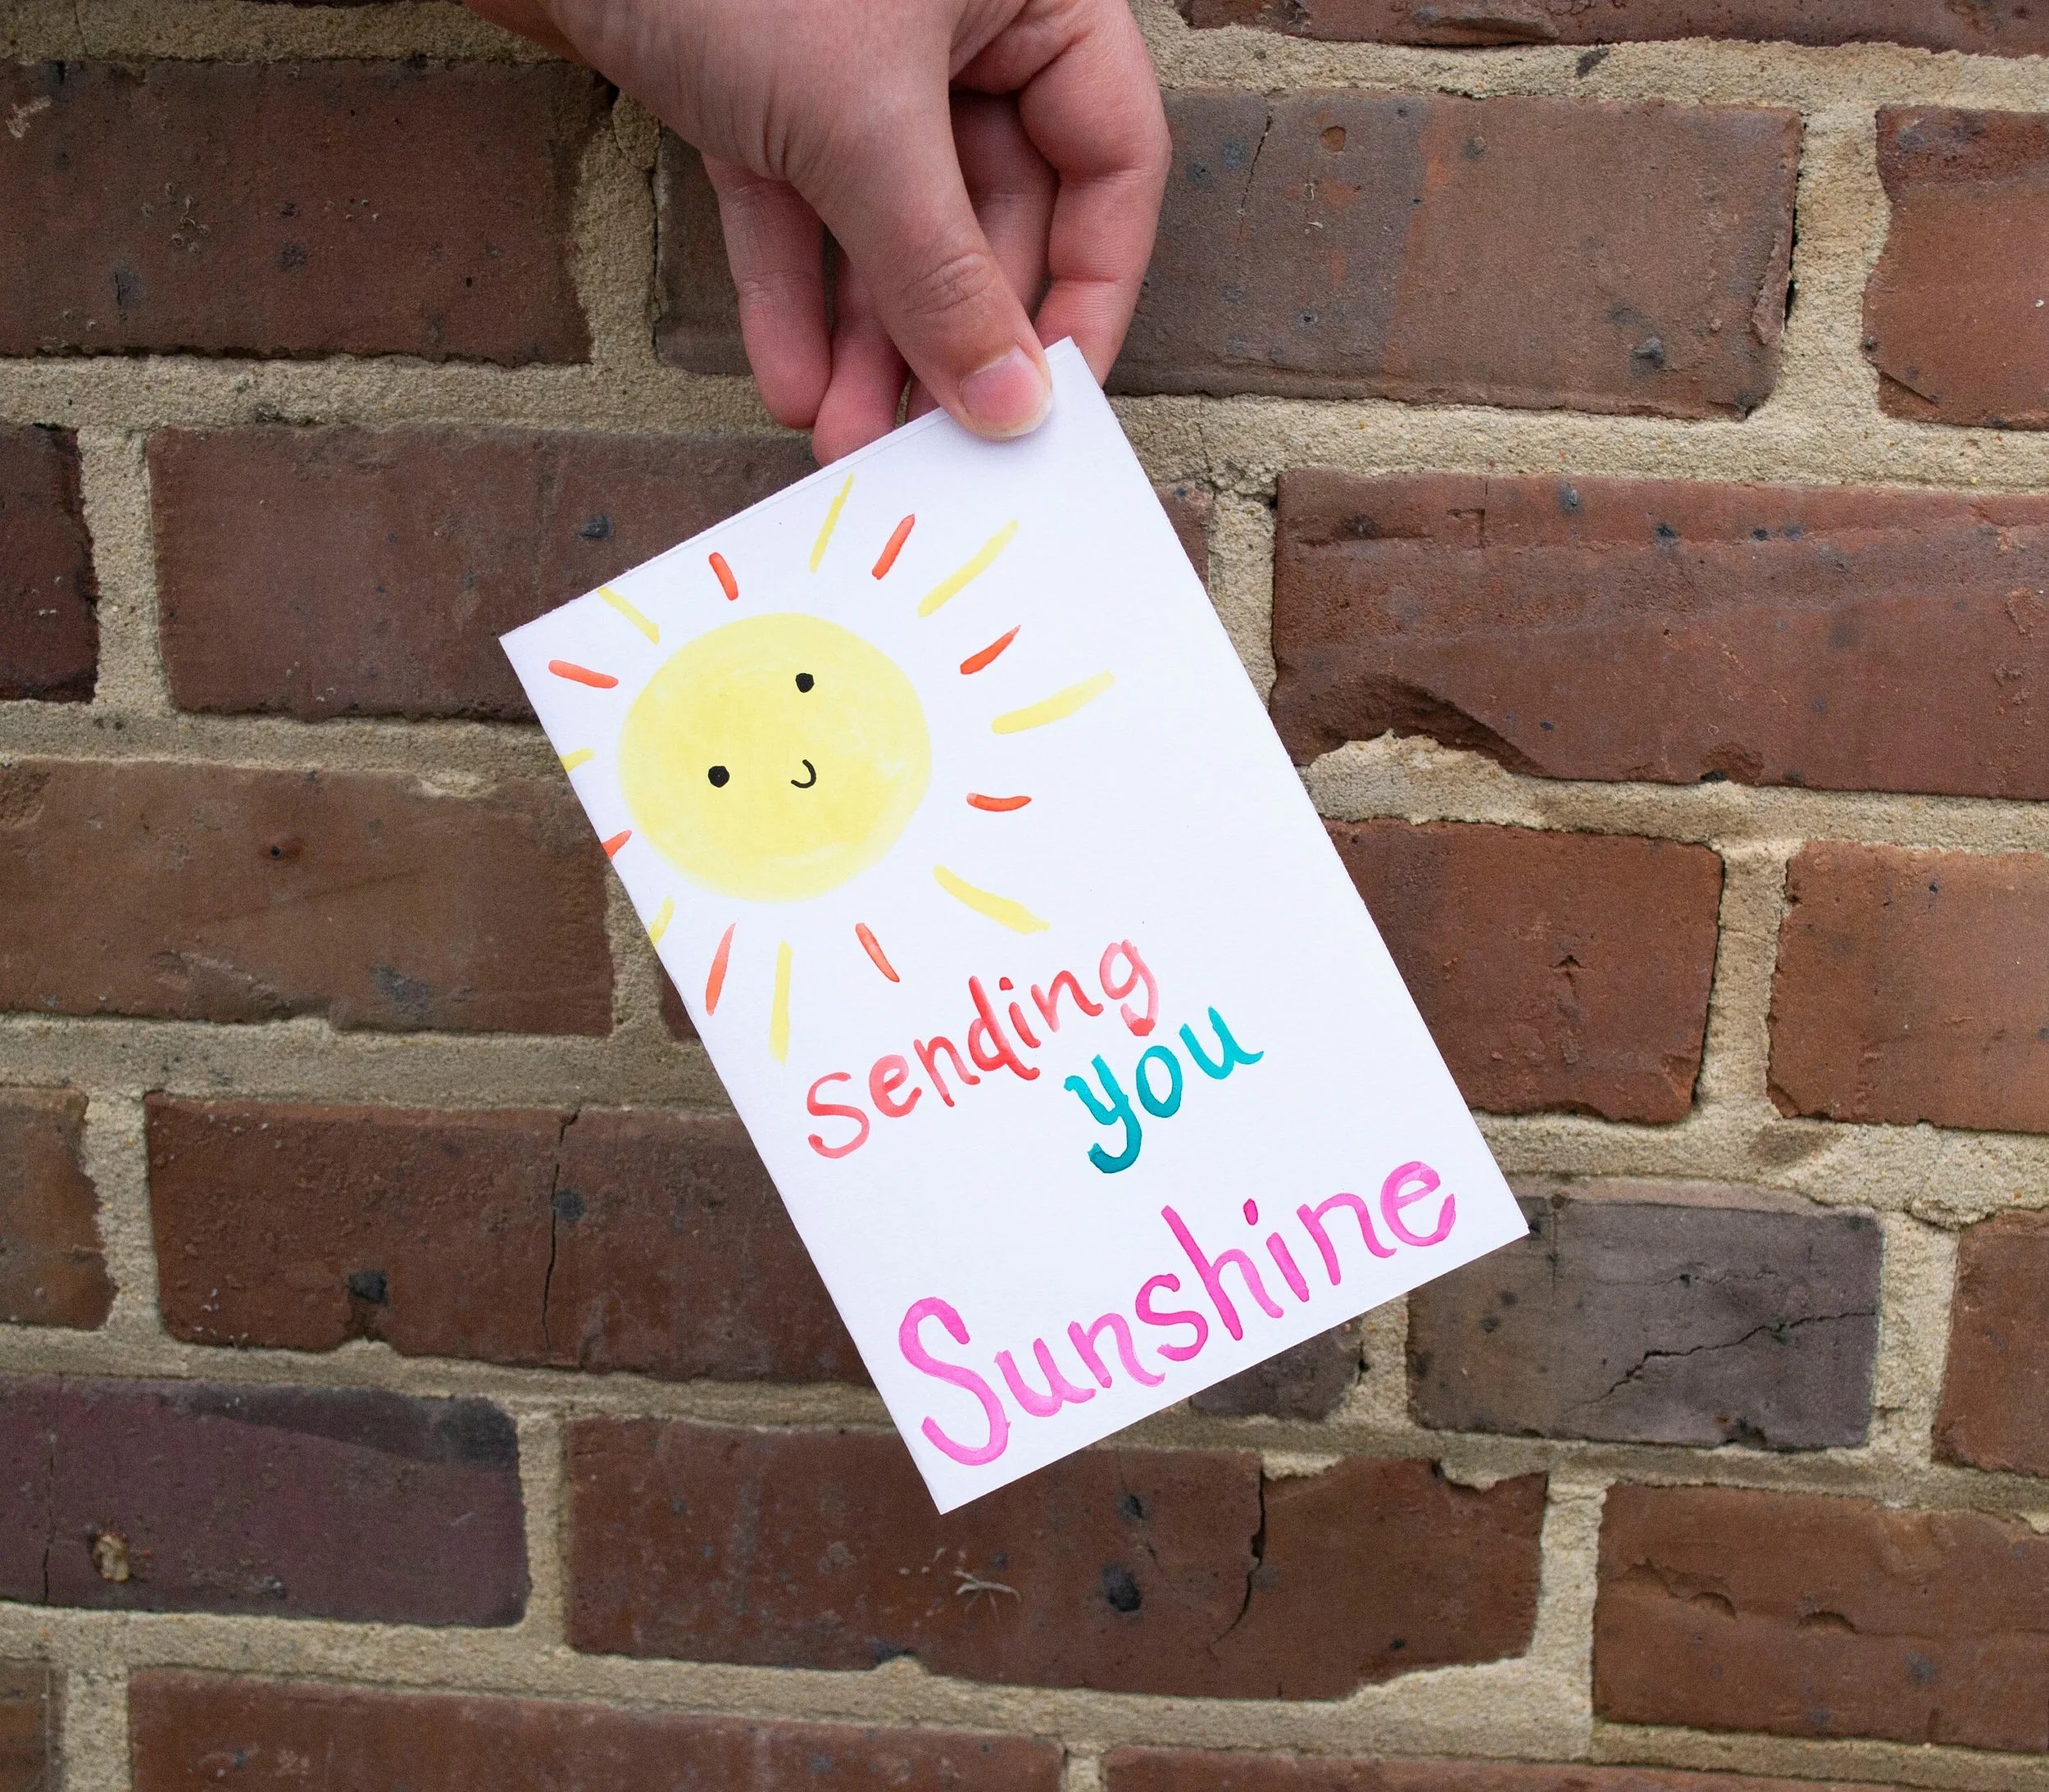 sending
you
Sunshine